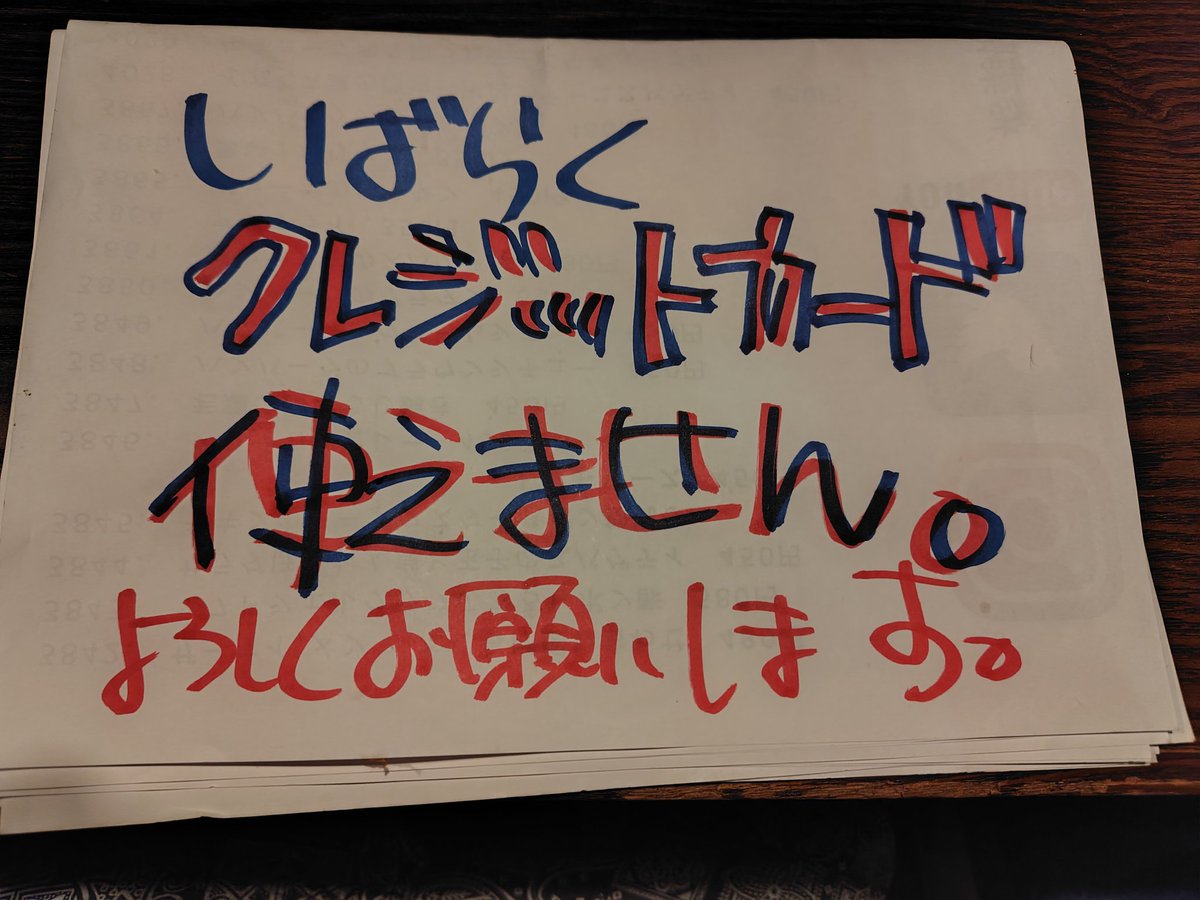 しばらく
クレジットカード
使えません。
よろしくお願いします。